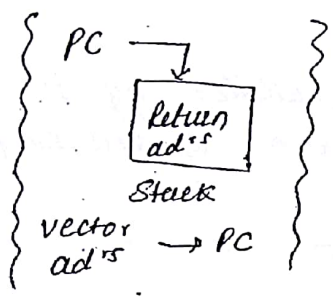 PC
Return
adrs
Stack
vector
adrs → PC